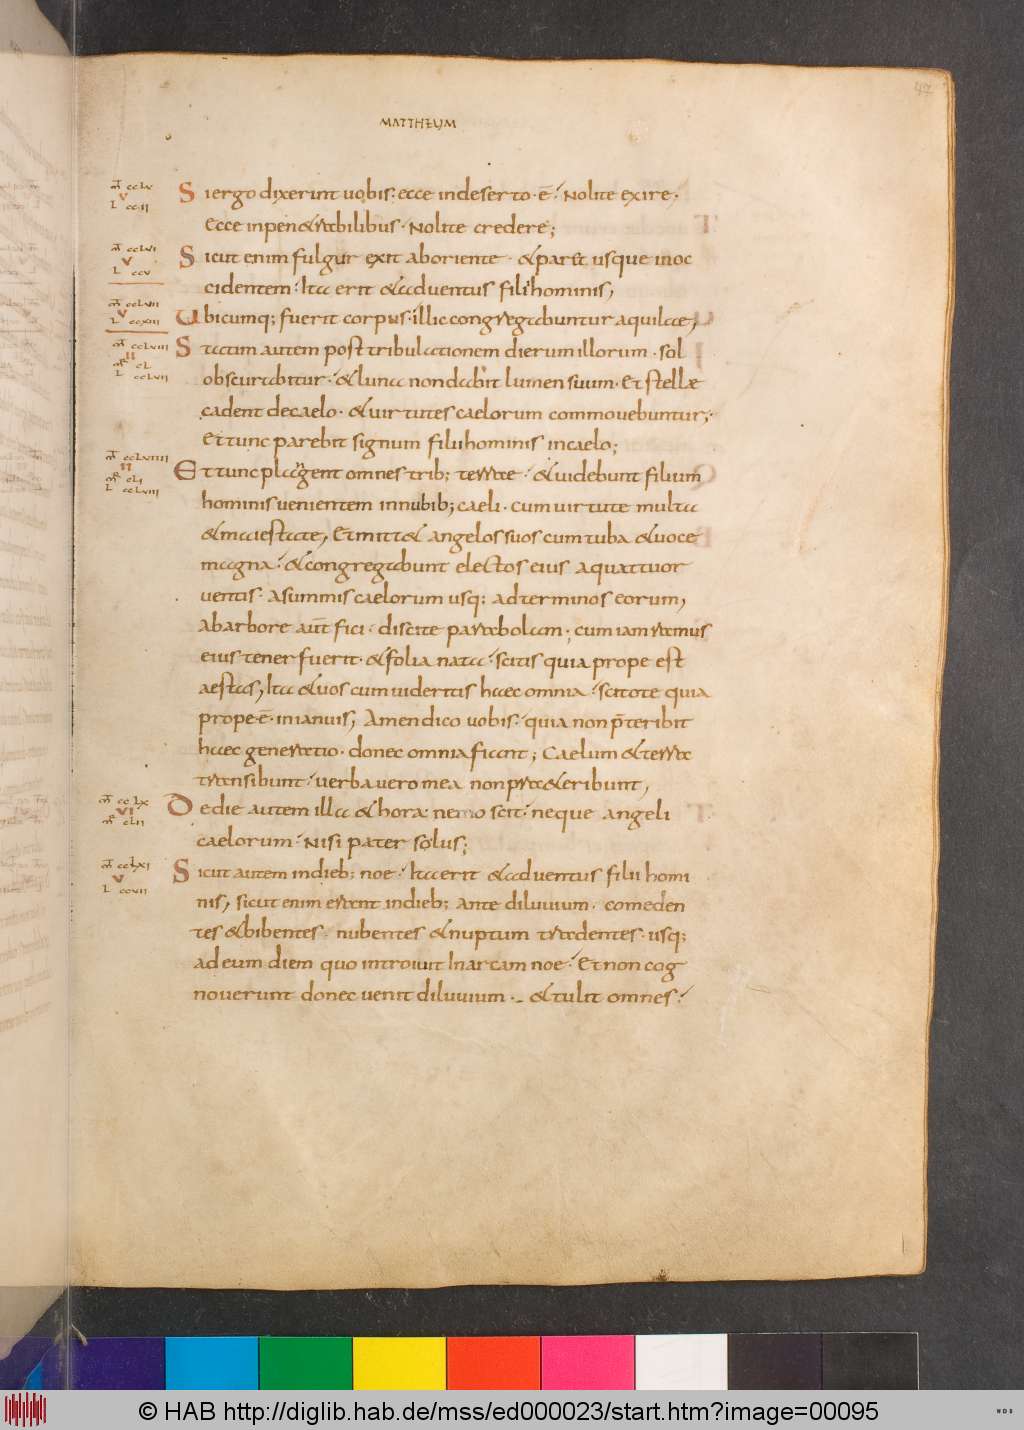 47
MATTHEUM
m̄ ccLv
V
L ccii
Siergo dixerint uobis: ecce indeserto· ē· Nolite exire,
Ecce inpenetrabilibus· Nolite credere;
m̄ ccLvi
V
L ccv
Sicut enim fulgur exit aboriente· & paret usque inoc
cidentem· Ita erit & aduentus filii hominis,
m̄ ccLvii
V
L ccxiii
Ubicumq; fuerit corpus· illic congregabuntur aquilae,
m̄ ccLviii
II
cL
L ccLvii
Statim autem post tribulationem dierum illorum· sol
obscurabitur· & luna non dabit lumen suum· Et stellae
cadent decaelo· & uirtutes caelorum commouebuntur;
Et tunc parebit signum filii hominis incaelo;
m̄ ccLviiii
II
cLi
L ccLviii
Et tunc plangent omnes trib; terrae· & uidebunt filium
hominis uenientem innubib; caeli· cum uirtute multa
& maiestate, Et mittet angelos suos cum tuba & uoce
magna· & congregabunt electos eius aquattuor
uentis· Asummis caelorum usq; adterminos eorum,
Abarbore aūt fici· discite parabolam; cum iam ramus
eius tener fuerit· & folia nata· scitis quia prope est
aestas, Ita & uos cum uideritis haec omnia· scitote quia
prope· ē· inianuis, Amen dico uobis· quia non p̄teribit
haec generatio· donec omnia fiant; Caelum & terra
transibunt· uerba uero mea non praeteribunt,
m̄ ccLx
VI
cLii
De die autem illa & hora nemo scit· neque angeli
caelorum· Nisi pater solus;
m̄ ccLxi
V
L ccvii
Sicut autem indieb; noe· Ita erit & aduentus filii homi
nis, sicut enim erant indieb; ante diluuium· comeden
tes & bibentes· nubentes & nuptum tradentes· usq;
ad eum diem quo introiuit In arcam noe· Et non cog
nouerunt donec uenit diluuium· & tulit omnes·
© HAB http://diglib.hab.de/mss/ed000023/start.htm?image=00095
WDB